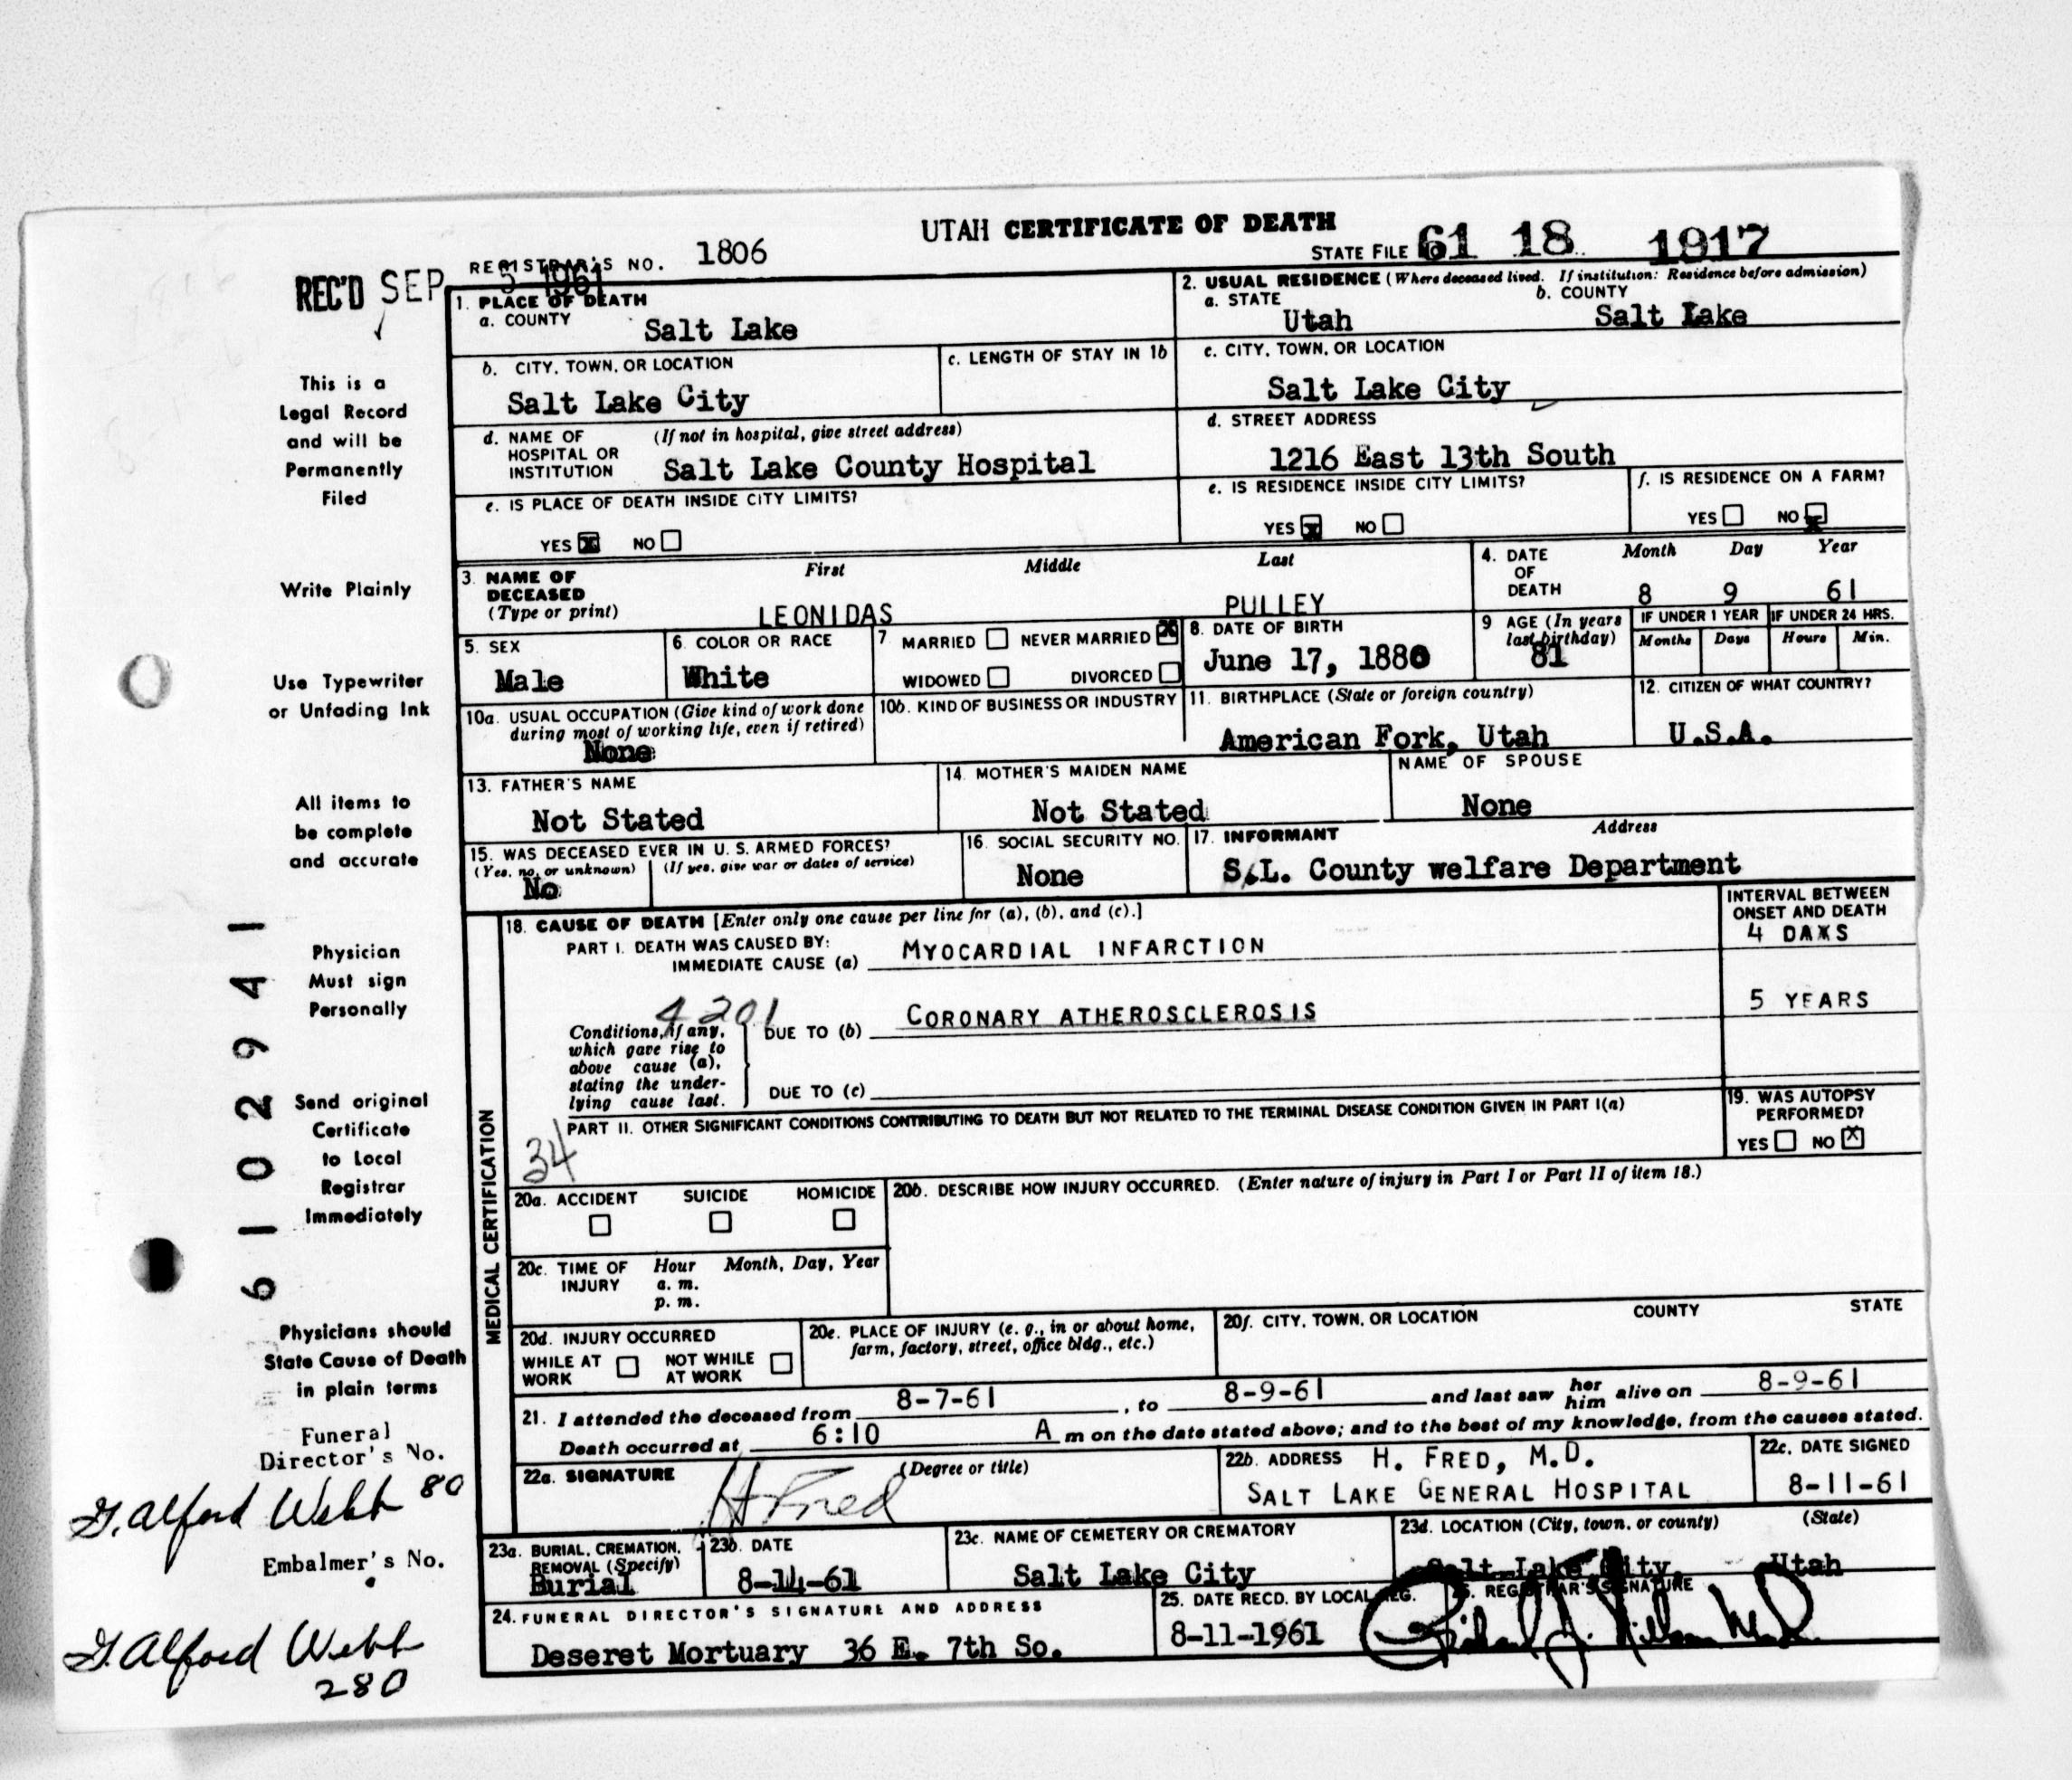 UTAH CERTIFICATE OF DEATH
REGISTRAR'S NO. 1806
STATE FILE 61 18 1917
REC'D SEP 5 1961
This is a
Legal Record
and will be
Permanently
Filed
Write Plainly
Use Typewriter
or Unfading Ink
All items to
be complete
and accurate
Physician
Must sign
Personally
Send original
Certificate
to Local
Registrar
Immediately
Physicians should
State Cause of Death
in plain terms
Funeral
Director's No.
G. Alford Webb 80
Embalmer's No.
G. Alford Webb
280
61 102941
1. PLACE OF DEATH
a. COUNTY
Salt Lake
2. USUAL RESIDENCE (Where deceased lived. If institution: Residence before admission)
a. STATE
Utah
b. COUNTY
Salt Lake
b. CITY, TOWN, OR LOCATION
Salt Lake City
c. LENGTH OF STAY IN 1b
c. CITY, TOWN, OR LOCATION
Salt Lake City
d. NAME OF HOSPITAL OR INSTITUTION
(If not in hospital, give street address)
Salt Lake County Hospital
d. STREET ADDRESS
1216 East 13th South
e. IS PLACE OF DEATH INSIDE CITY LIMITS?
YES X NO
e. IS RESIDENCE INSIDE CITY LIMITS?
YES X NO
f. IS RESIDENCE ON A FARM?
YES NO X
3. NAME OF DECEASED
(Type or print)
First Middle Last
LEONIDAS PULLEY
4. DATE OF DEATH
Month Day Year
8 9 61
5. SEX
Male
6. COLOR OR RACE
White
7 MARRIED NEVER MARRIED X
WIDOWED DIVORCED
8. DATE OF BIRTH
June 17, 1880
9 AGE (In years last birthday)
81
IF UNDER 1 YEAR
Months Days
IF UNDER 24 HRS.
Hours Min.
10a. USUAL OCCUPATION (Give kind of work done during most of working life, even if retired)
None
10b. KIND OF BUSINESS OR INDUSTRY
11. BIRTHPLACE (State or foreign country)
American Fork, Utah
12. CITIZEN OF WHAT COUNTRY?
U.S.A.
13. FATHER'S NAME
Not Stated
14. MOTHER'S MAIDEN NAME
Not Stated
NAME OF SPOUSE
None
15. WAS DECEASED EVER IN U. S. ARMED FORCES?
(Yes, no, or unknown) (If yes, give war or dates of service)
No
16. SOCIAL SECURITY NO.
None
17. INFORMANT Address
S.L. County welfare Department
MEDICAL CERTIFICATION
18. CAUSE OF DEATH [Enter only one cause per line for (a), (b), and (c).]
INTERVAL BETWEEN ONSET AND DEATH
PART I. DEATH WAS CAUSED BY:
IMMEDIATE CAUSE (a) MYOCARDIAL INFARCTION
4 DAXS
4201
Conditions, if any, which gave rise to above cause (a), stating the underlying cause last.
DUE TO (b) CORONARY ATHEROSCLEROSIS
5 YEARS
DUE TO (c)
PART II. OTHER SIGNIFICANT CONDITIONS CONTRIBUTING TO DEATH BUT NOT RELATED TO THE TERMINAL DISEASE CONDITION GIVEN IN PART I(a)
34
19. WAS AUTOPSY PERFORMED?
YES NO X
20a. ACCIDENT SUICIDE HOMICIDE
20b. DESCRIBE HOW INJURY OCCURRED. (Enter nature of injury in Part I or Part II of item 18.)
20c. TIME OF INJURY
Hour Month, Day, Year
a. m.
p. m.
20d. INJURY OCCURRED
WHILE AT WORK NOT WHILE AT WORK
20e. PLACE OF INJURY (e. g., in or about home, farm, factory, street, office bldg., etc.)
20f. CITY, TOWN, OR LOCATION COUNTY STATE
21. I attended the deceased from 8-7-61, to 8-9-61 and last saw her him alive on 8-9-61
Death occurred at 6:10 A m on the date stated above; and to the best of my knowledge, from the causes stated.
22a. SIGNATURE (Degree or title)
H Fred
22b. ADDRESS H. FRED, M.D.
SALT LAKE GENERAL HOSPITAL
22c. DATE SIGNED
8-11-61
23a. BURIAL, CREMATION, REMOVAL (Specify)
Burial
23b. DATE
8-14-61
23c. NAME OF CEMETERY OR CREMATORY
Salt Lake City
23d. LOCATION (City, town, or county) (State)
Salt Lake City, Utah
24. FUNERAL DIRECTOR'S SIGNATURE AND ADDRESS
Deseret Mortuary 36 E. 7th So.
25. DATE RECD. BY LOCAL REG.
8-11-1961
26. REGISTRAR'S SIGNATURE